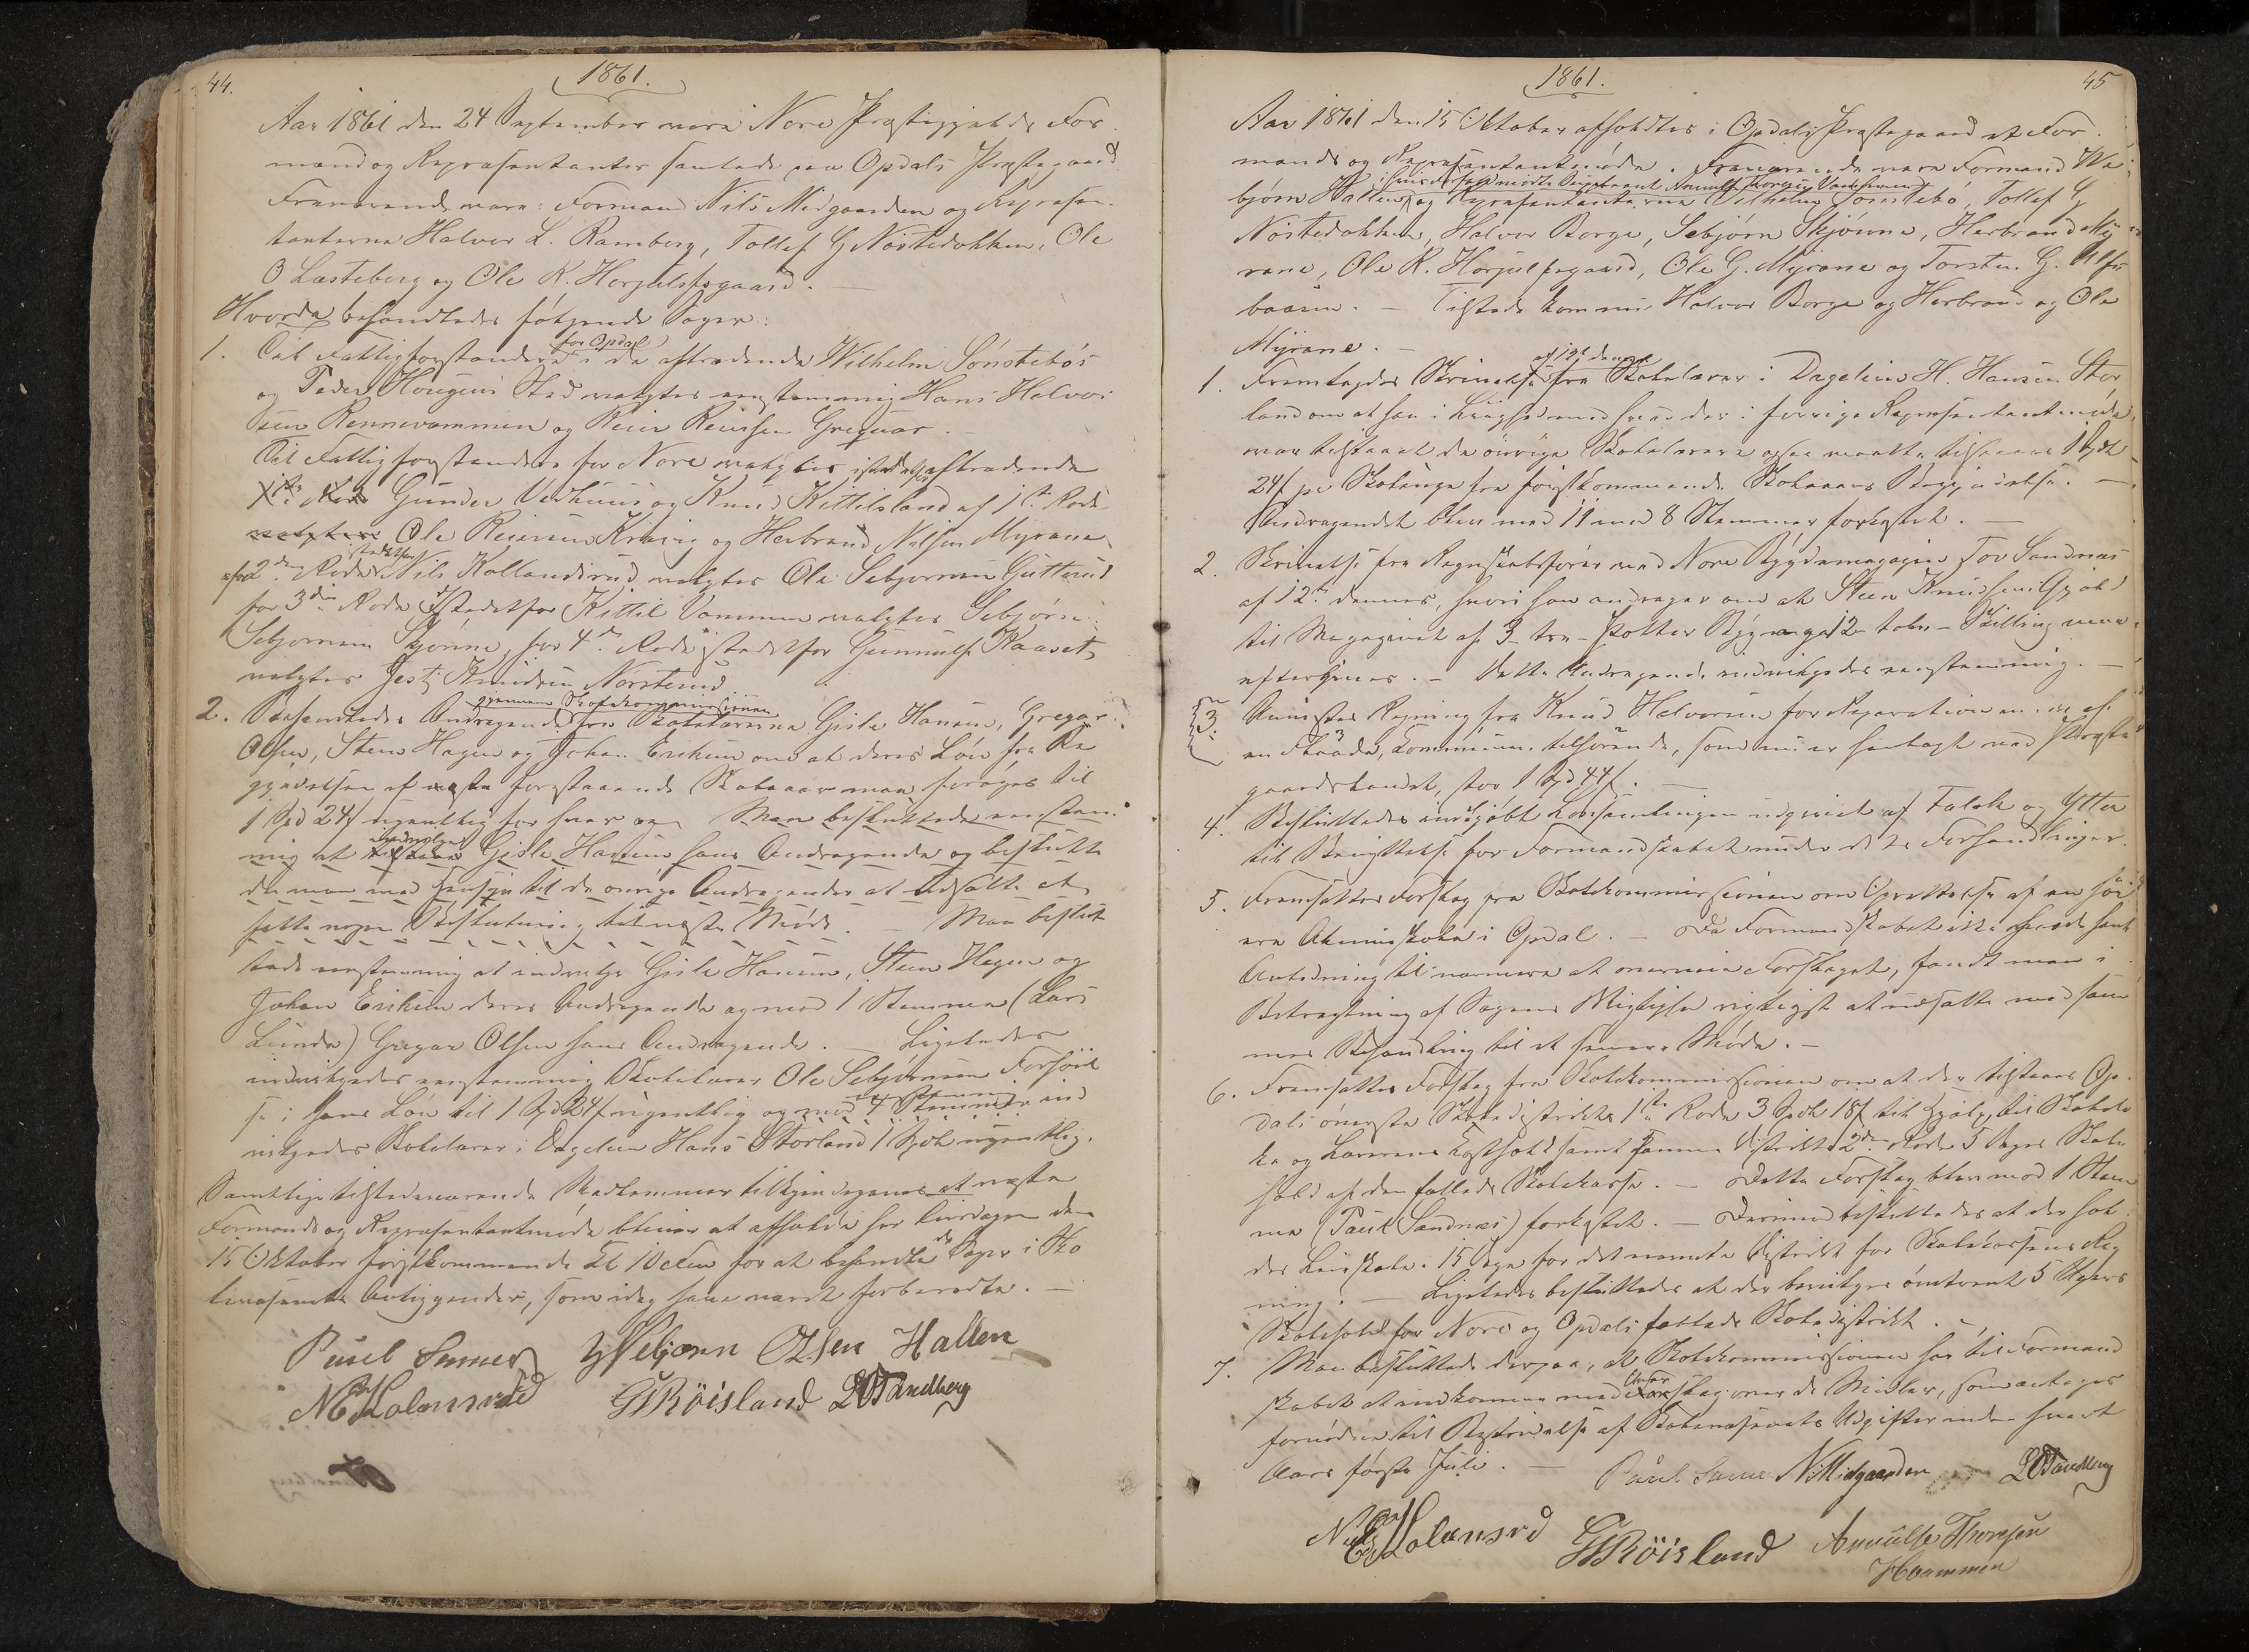 44.
1861.
Aar 1861 den 24 September vare Nore Præstegjelds For-
mænd og Repræsentanter samlede paa Opdals Præstegaard
Fraværende vare: Formand Nils Midgaarden og Repræsen-
tanterne Halvor L. Ramberg, Tollef G Nöstedokken, Ole
O Læsteberg og Ole K. Horjulfsgaard.
Hvorda behandledes følgende Sager:
1. Til Fattigforstandere for Opdal i de aftrædende Wilhelm Sönstebös
og Peder Hougens Sted valgtes eenstemmig Hans Halvor
sen Rennevammen og Reier Reiersen Gregnar.
Til Fattigforstandere for Nore valgtes istedetfor aftrædende
Gunder Vedhuus og Knud Kittilsland af 1ste Rode
valgtes Ole Reiersen Kravig og Herbrand Nilsen Myrane,
for 2den Rode istedetfor Nils Kollandsrud valgtes Ole Sebjørnsen Gutterud
for 3die Rode istedetfor Kittil Vammen valgtes Sebjörn
Sebjørnsen Skjönne, for 4de Rode istedetfor Gunnulf Kaaset,
valgtes Gest Knudsen Norsterud
2. Behandledes Andragende gjennem Skolekommissionen fra Skolelærerne Gisle Hansen, Gregar
Olsen, Steen Hagen og Johan Eriksen om at deres Lön fra Be
gyndelsen af næste forestaaende Skoleaar maa forøges til
1 Spd 24 s ugentlig for hver Man besluttede eenstem
mig at indvilge Gisle Hansen hans Andragende og beslutte
de man med Hensyn til de øvrige Andragender at udsætte at
fatte nogen Beslutning til næste Møde. — Man beslut
tede eenstemmig at indvilge Gisle Hansen, Steen Hagen og
Johan Eriksen deres Andragende og mod 1 Stemme (Lars
Lunde) Gregar Olsen hans Andragende. — Ligeledes
indvilgedes eenstemmig Skolelærer Ole Sebjörnsen Forhöiel
se i hans Lön til 1 Spd 24 s ugentlig og mod 4 Stemmer ind
vilgedes Skolelærer i Dagelien Hans Storland 1 Spd ugentlig.
Samtlige tilstedeværende Medlemmer tilkjendegaves at næste
Formands og Repræsentantmøde bliver at afholde her Tirsdagen den
15 Oktober førstkommende Kl 10 Slet for at behandle de Sager i Sko
levæsenets Anliggender, som idag have været forberedte. —
Paul Simer Vebjørn Olsen Hallen
NE Kolensrud GKRöisland LOTandberg
1861.
45
Aar 1861 den 15 Oktober afholdtes i Opdals Præstegaard et For-
mands og Repræsentantmøde. Fraværende vare Formand We-
bjørn Hallen, i hvis Forfald mødte Suppleant Annulf Thorsen Vammen og Repræsentanterne Wilhelm Sönstebö, Tollef G
Nöstedokken, Halvor Borge, Sebjörn Skjönne, Herbrand My
rane, Ole K. Horjulfsgaard, Ole G. Myrane og Torsten G. Ulfs
baasen. — Tilstede kom nu Halvor Borge og Herbrand og Ole
Myrane. —
1. Fremlagdes Skrivelse af 12te dennes fra Skolelærer i Dagelien H. Hansen Stor
land om at han i Lighed med hvad der i forrige Repræsentantmøde
var tilstaaet de øvrige Skolelærere ogsaa maatte tilstaaes 1 Spd
24 s pr Skoleuge fra førstkommende Skoleaars Begyndelse. —
Andragendet blev med 11 mod 8 Stemmer forkastet. —
2. Skrivelse fra Regnskabsfører ved Nore Bygdemagasin Tov Sandnæs
af 12te dennes, hvori han andrager om at Steen Knudsens Gjæld
til Magasinet af 3 tre Potter Byg og 12 tolv Skilling maa
eftergives. — Dette Andragende indvilgedes eenstemmig. —
3. Anvistes Regning fra Knud Halvorsen for Reparationen af
en Kommunen tilhørende, som nu er henlagt ved Præste
gaardslandet, stor 1 Spd 44 s. —
4. Besluttedes indkjøbt Lovsamlingen udgivet af Falch og Ytter
til Benyttelse for Formandskabet under dets Forhandlinger.
5. Fremsattes Forslag fra Skolekommissionen om Oprettelse af en høi
ere Almueskole i Opdal. — Da Formandskabet ikke havde havt
Anledning til nærmere at overveie Forslaget, fandt man i
Betragtning af Sagens Vigtighed rigtigst at udsætte med sam
mes Behandling til et senere Møde. —
6. Fremsattes Forslag fra Skolekommissionen om at der tilstaaes Op-
dals øverste Skoledistrikts 1ste Rode 3 Spd 18 s til Hjælp til Skolelo
kale og Lærerens Kosthold samt samme Distrikts 2den Rode 5 Dages Skole
hold af den fælleds Skolekasse. — Dette Forslag blev mod 1 Stem
me (Paul Sandnæs) forkastet. — Derimod besluttedes at der hol
des Læseskole i 15 Dage for det nævnte Distrikt for Skolekassens Reg
ning. — Ligeledes besluttedes at der bevilges omtrent 5 Ugers
Skolehold for Nore og Opdals fælleds Skoledistrikt. —
7. Man besluttede derpaa, at Skolekommissionen har til Formand
skabet at indkomme med Forslag over de Midler, som antages
fornødne til Bestridelse af Skolevæsenets Udgifter inden hvert
Aars første Juli. —
Paul Simer NMidgaarden LOTandberg
NE Kolensrud GKRöisland Annulf Thorsen
Hvammen